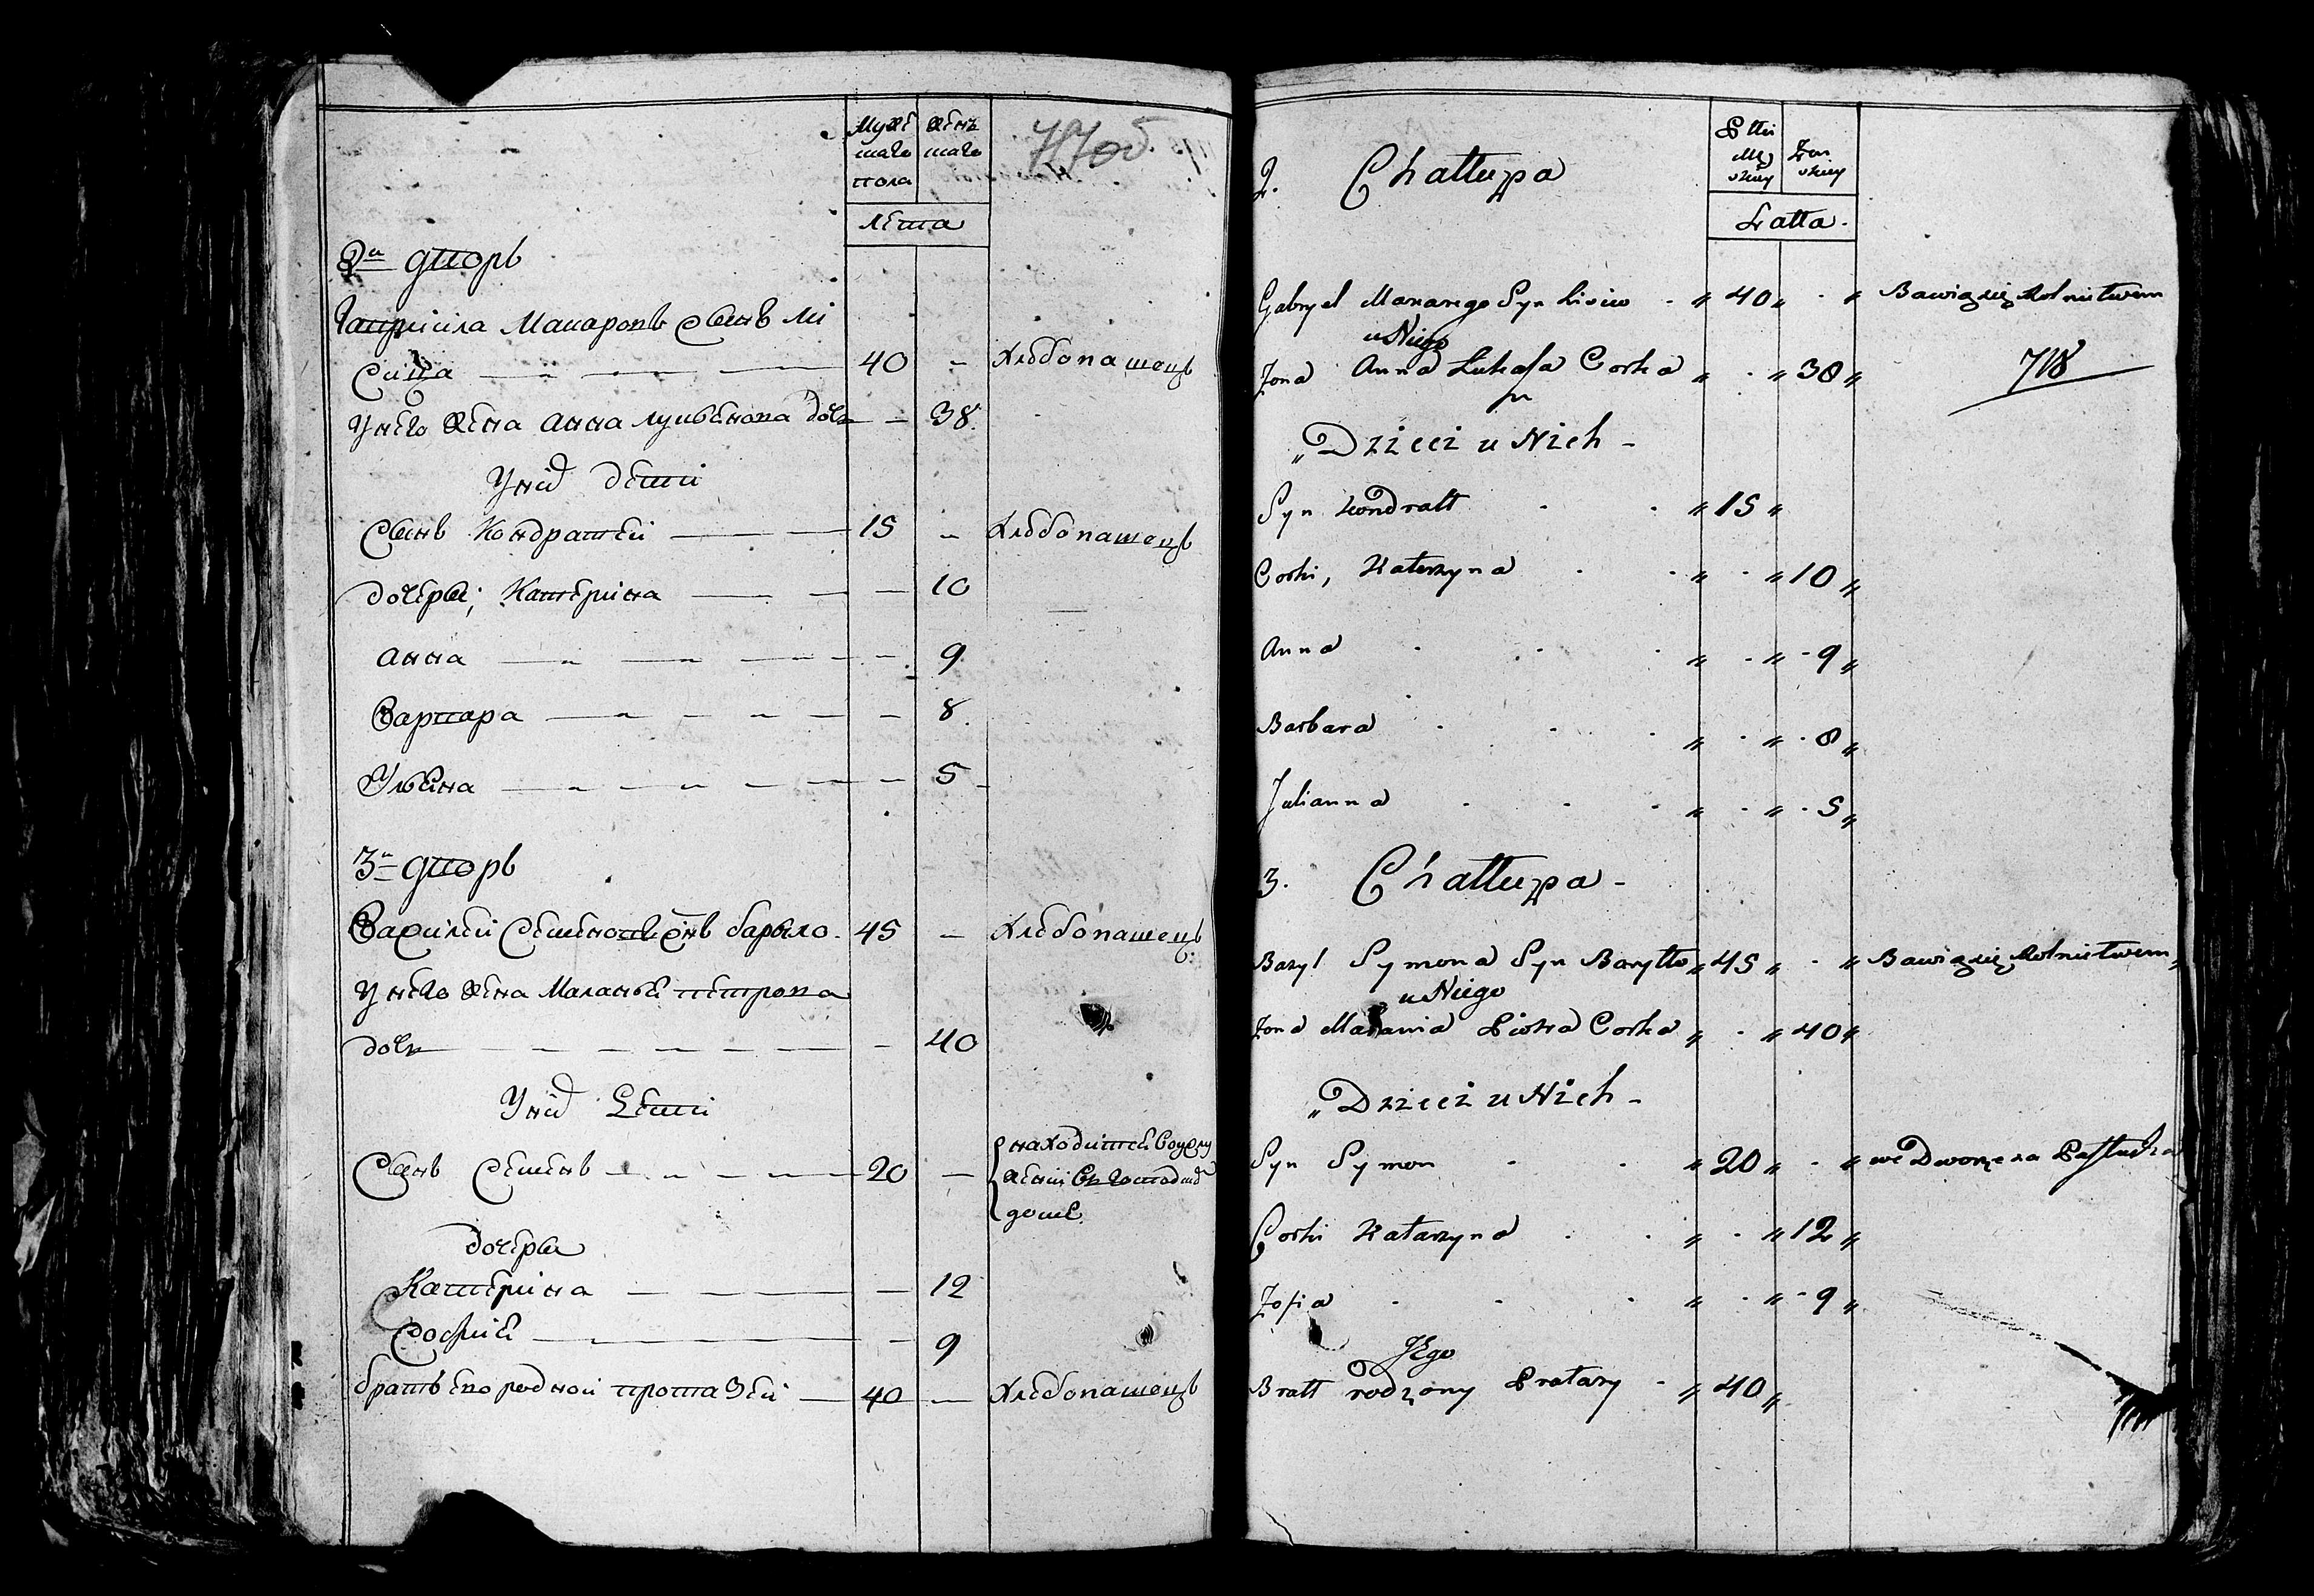 Мужескаго пола
Женскаго
Лета
2й дворъ
Гаврiила Макаровъ сынъ Ли
сица 40 — хлебопашецъ
У него жена Анна Лукьянова дочь — 38
У них дети
Сынъ Кондратей 15 — хлебопашецъ
дочеры, Катерина — 10
Анна — 9
Варвара — 8
Ульяна — 5
3й дворъ
Василей Семеновъ сынъ Барыло 45 — хлебопашецъ
У него жена Маланья Петрова
дочь — 40
У них дети
Сынъ Семенъ 20 —
находится в услу
жении въ господск
доме
дочеры
Катерина — 12
София — 9
братъ его родной Протазей 40 — хлебопашецъ
Płci
Męzkiey
Żenskiey
Latta.
2. Chattupa
Gabryel Syn 40 Bawią się Rolnictwem
u Niego
Żona Anna Łukasza Corka 38
718
Dzieci u Nich
Syn Kondratt 15
Corki, Katerzyna 10
Anna 9
Barbara 8
Julianna 5
3. Chattupa
Bazyl Symona Syn Baryłło 45 Bawią się Rolnictwem
u Niego
Żona Małania Piotra Corka 40
Dzieci u Nich
Syn Symon 20 we Dworze za Pastucha
Corki Katarzyna 12
Zofia 9
Jego
Bratt rodzony Protazy 40